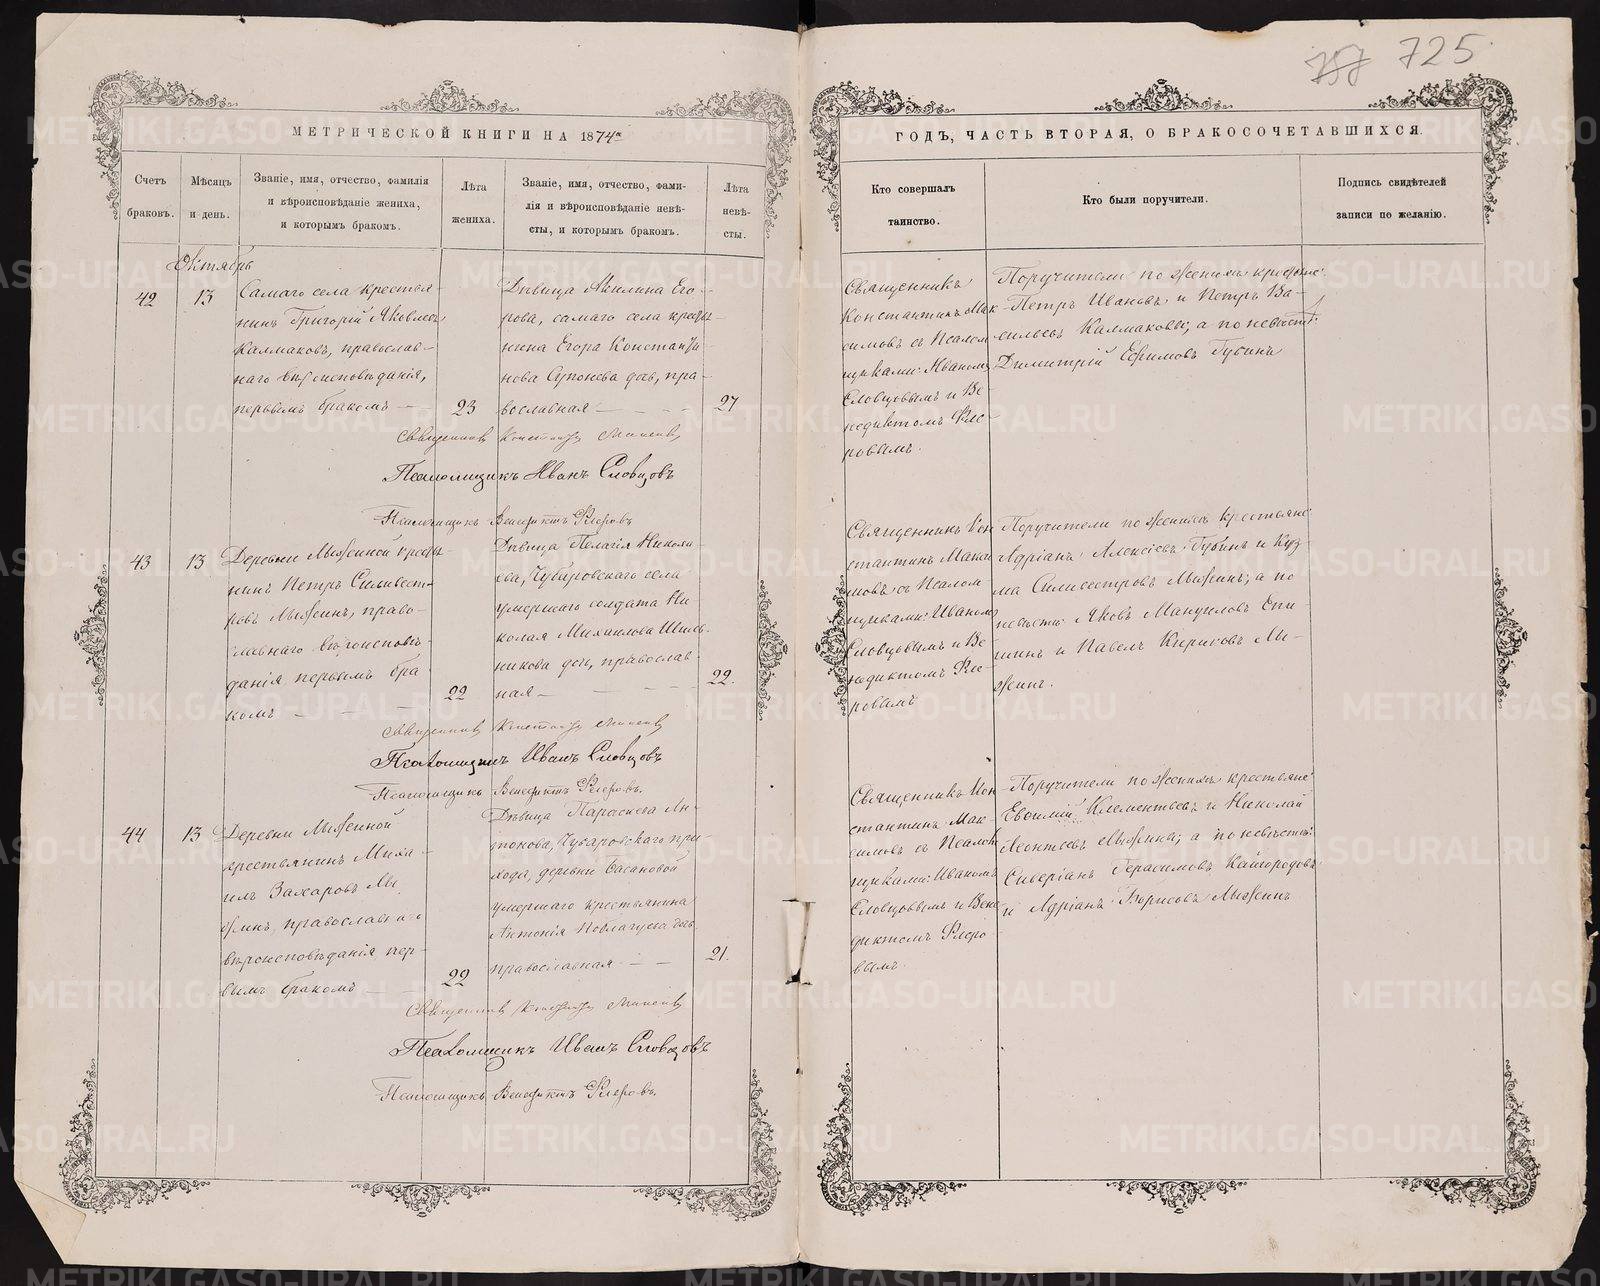 757 725
МЕТРИЧЕСКОЙ КНИГИ НА 1874й
ГОДЪ, ЧАСТЬ ВТОРАЯ, О БРАКОСОЧЕТАВШИХСЯ.
Счетъ
браковъ.
Мѣсяцъ
и день.
Званіе, имя, отчество, фамилія
и вѣроисповѣданіе жениха,
и которымъ бракомъ.
Лѣта
жениха.
Званіе, имя, отчество, фами-
лія и вѣроисповѣданіе невѣ-
сты, и которымъ бракомъ.
Лѣта
невѣ-
сты.
Кто совершалъ
таинство.
Кто были поручители.
Подпись свидѣтелей
записи по желанію.
Октябрь
42
13
Самаго села крестья-
нинъ Григорій Яковлевъ
Калмаковъ, православ-
наго вѣроисповѣданія,
первымъ бракомъ
23
Дѣвица Акилина Его-
рова, самаго села крестья-
нина Егора Константи-
нова Супонева дочь, пра-
вославная
27
Священникъ
Константинъ Мак-
симовъ съ Псалом
щиками: Иваномъ
Словцовымъ и Ве
недиктомъ Фле-
ровымъ.
Поручители по женихѣ крестьяне:
Петръ Ивановъ и Петръ Ва-
сильевъ Калмаковы; а по невѣстѣ:
Димитрій Ефимовъ Губинъ
Священникъ
Псаломщикъ Иванъ Словцовъ
Псаломщикъ Венедиктъ Флеровъ
43
13
Деревни Мыжиной крестья-
нинъ Петръ Сильвест-
ровъ Мыжинъ, право-
славнаго вѣроисповѣ-
данія первымъ бра
комъ
22
Дѣвица Пелагія Никола-
ева, Чубаровскаго села
умершаго солдата Ни
колая Михаилова Шиль-
никова дочь, православ-
ная
22.
Священникъ Кон
стантинъ Макси
мовъ съ Псалом
щиками: Иваномъ
Словцовымъ и Ве
недиктомъ Фле-
ровымъ
Поручители по женихѣ крестьяне
Адріанъ Алексіевъ Губинъ и Куз-
ма Силвестровъ Мыжинъ; а по
невѣстѣ: Яковъ Мануиловъ Епи
шинъ и Павелъ Кириковъ Мы-
жинъ.
Священникъ
Псаломщикъ Иванъ Словцовъ
Псаломщикъ Венедиктъ Флеровъ.
44
13
Деревни Мыжиной
крестьянинъ Миха-
илъ Захаровъ Мы
жинъ, православнаго
вѣроисповѣданія пер-
вымъ бракомъ
22
Дѣвица Параскева Ан-
тонова, Чубаровскаго при-
хода, деревни Басановой
умершаго крестьянина
Антонія дочь
православная
21.
Священникъ Кон
стантинъ Мак-
симовъ съ Псалом
щиками: Иваномъ
Словцовымъ и Вене
диктомъ Флеро
вымъ.
Поручители по женихѣ крестьяне
Евфимій Клементьевъ и Николай
Леонтьевъ Мыжины; а по невѣстѣ:
Северіанъ Герасимовъ Кайгородовъ
и Адріанъ Борисовъ Мыжинъ
Священникъ
Псаломщикъ Иванъ Словцовъ
Псаломщикъ Венедиктъ Флеровъ.
METRIKI.GASO-URAL.RU